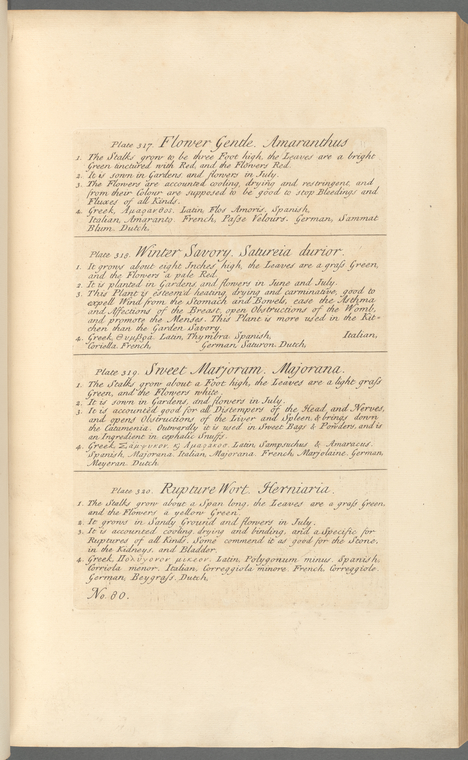 Plate 317. Flower Gentle. Amaranthus
1. The Stalks grow to be three Foot high, the Leaves are a bright
Green tinctured with Red, and the Flowers Red.
2. It is sown in Gardens and flowers in July.
3. The Flowers are accounted cooling, drying and restringent, and
from their Colour are supposed to be good to stop Bleedings and
Fluxes of all Kinds.
4. Greek, Αμαρανθος. Latin, Flos Amoris. Spanish,
Italian, Amaranto. French, Paſse Velours. German, Sammat
Blum. Dutch.
Plate 318. Winter Savory. Satureia durior.
1. It grows about eight Inches high, the Leaves are a graſs Green,
and the Flowers a pale Red.
2. It is planted in Gardens and flowers in June and July.
3. This Plant is esteem'd heating, drying and carminative, good to
expell Wind from the Stomach and Bowels, ease the Asthma
and Affections of the Breast, open Obstructions of the Womb,
and promote the Menses. This Plant is more used in the Kit-
chen than the Garden Savory.
4. Greek, Θυμβρα. Latin, Thymbra. Spanish, Italian,
Coriella. French, German, Saturon. Dutch,
Plate 319. Sweet Marjoram. Majorana.
1. The Stalks grow about a Foot high, the Leaves are a light graſs
Green, and the Flowers white.
2. It is sown in Gardens, and flowers in July.
3. It is accounted good for all Distempers of the Head, and Nerves,
and opens Obstructions of the Liver and Spleen, & brings down
the Catamenia. Outwardly it is used in Sweet Bags & Powders, and is
an Ingredient in cephalic Snuffs.
4. Greek, Latin, Sampsuchus & Amaracus.
Spanish, Majorana. Italian, Majorana. French, Marjolaine. German,
Meyeran. Dutch
Plate 320. Rupture Wort. Herniaria.
1. The Stalks grow about a Span long, the Leaves are a graſs Green,
and the Flowers a yellow Green.
2. It grows in Sandy Ground and flowers in July.
3. It is accounted cooling, drying and binding, and a Specific for
Ruptures of all Kinds. Some commend it as good for the Stone,
in the Kidneys, and Bladder.
4. Greek, Latin, Polygonum minus. Spanish,
Corriola menor. Italian, Correggiola minore. French, Correggiole
German, Beygraſs. Dutch,
No. 80.